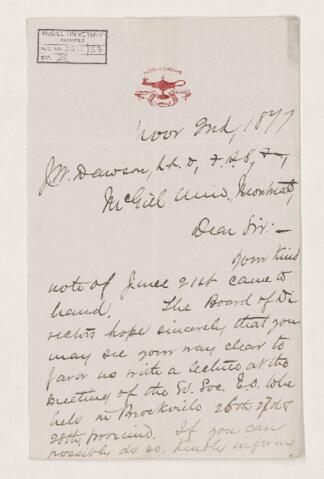 McGILL UNIVERSITY
ARCHIVES
ACC. NO. 2211/59
REF. 28
1877
J. W. Dawson, LL. D, F. R. S, &c,
McGill Univ. Montreal,
Dear Sir:—
Your kind
note of June 21st came to
hand. The Board of Di
rectors hope sincerely that you
may see your way clear to
favor us with a lecture at the
meeting of the Ed. Soc. E.O. to be
held in Brockville 26th 27th &
28th proximo. If you can
possibly do so, kindly inform